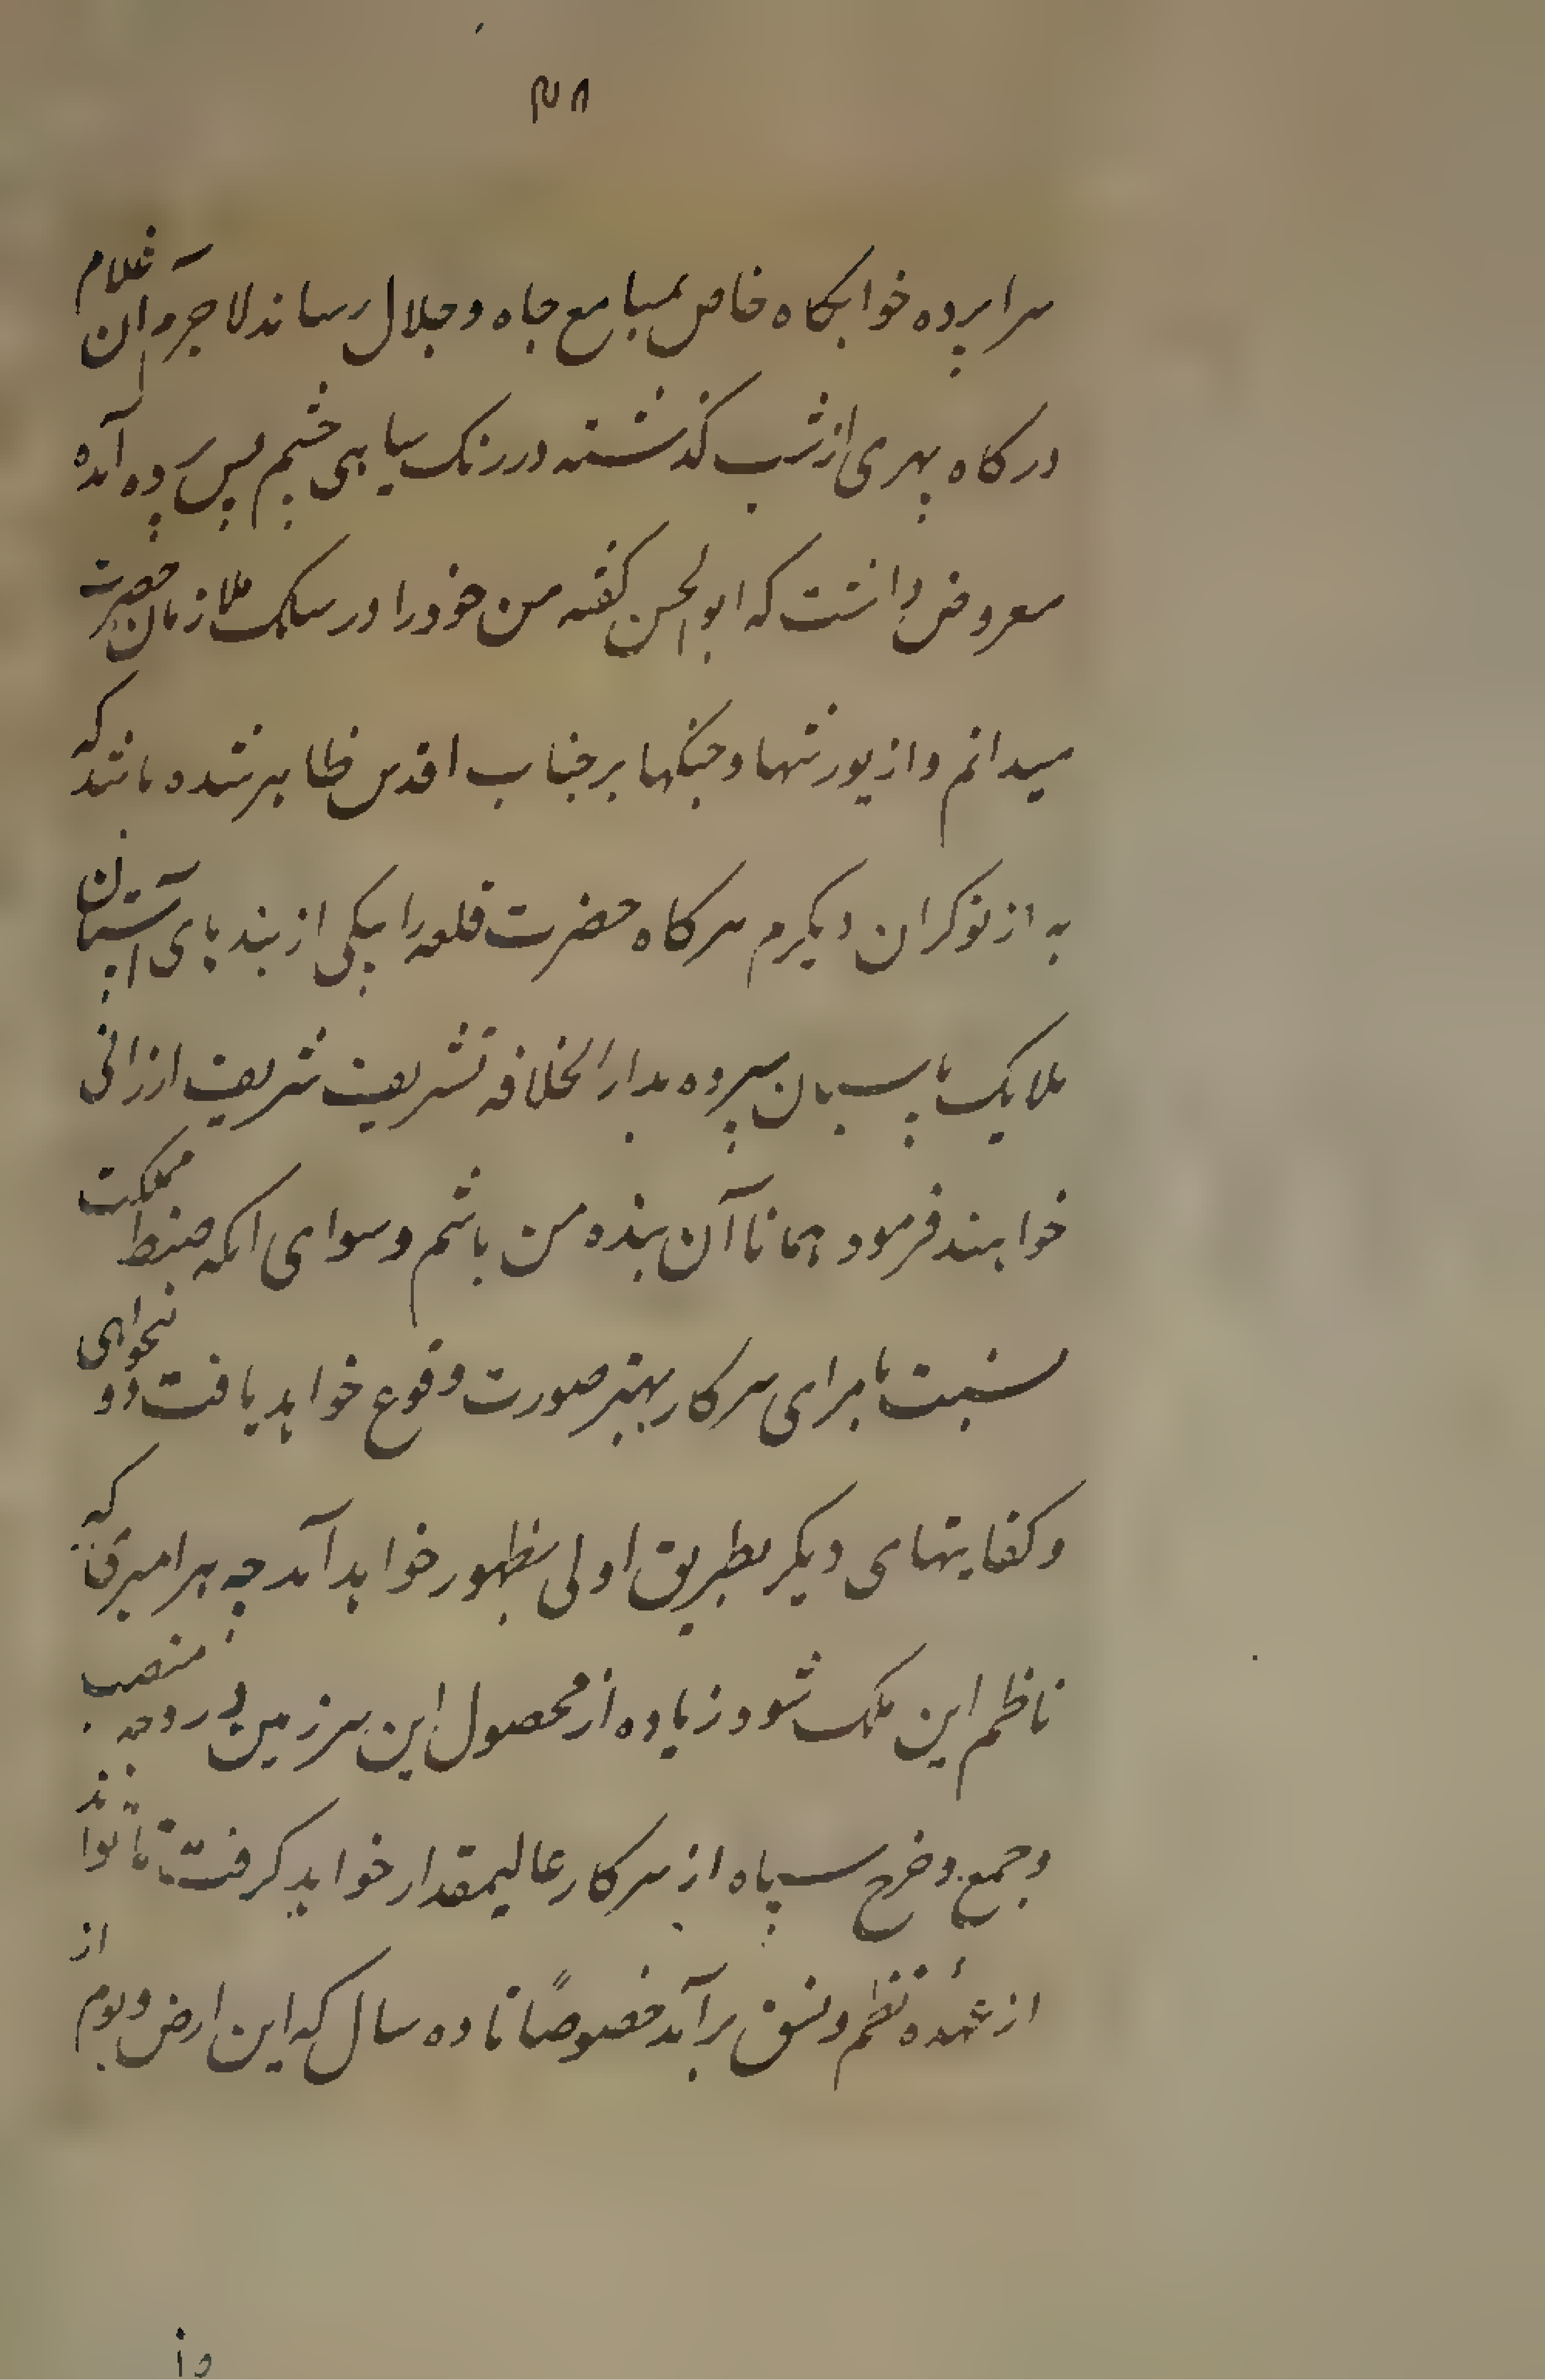 ۴۸
سراپرده خوابکاه خاص بمسامع جاه و جلال رساند لاجرم آن غلام
درکاه پهری از شب کذشته در رنک سیاهی چشم پس پرده آمده
معروض داشت که ابوالحسن کفته من خود را در سلک ملازمان حضرت
میدانم و از یورشها و جنکها بر جناب اقدس ظاهر شده باشد که
به از نوکران دیکرم هرکاه حضرت قلعه را بیکی از بندهای آستان
ملایک پاسبان سپرده بدار الخلافه تشریف شریف ارزانی
خواهند فرمود همانا آن بنده من باشم و سوای انکه ضبط مملکت
نسبت بامرای سرکار بهتر صورت وقوع خواهد یافت دو
و کفایتهای دیکر بطریق اولی بظهور خواهد آمد چه هر امیری که
ناظم این ملک شود زیاده از محصول این سرزمین در وجه منصب
و جمع و خرج سپاه از سرکار عالیمقدار خواهد کرفت تا تواند
از عهدهٔ نظم و نسق برآید خصوصاً تا ده سال که این ارض و بوم از